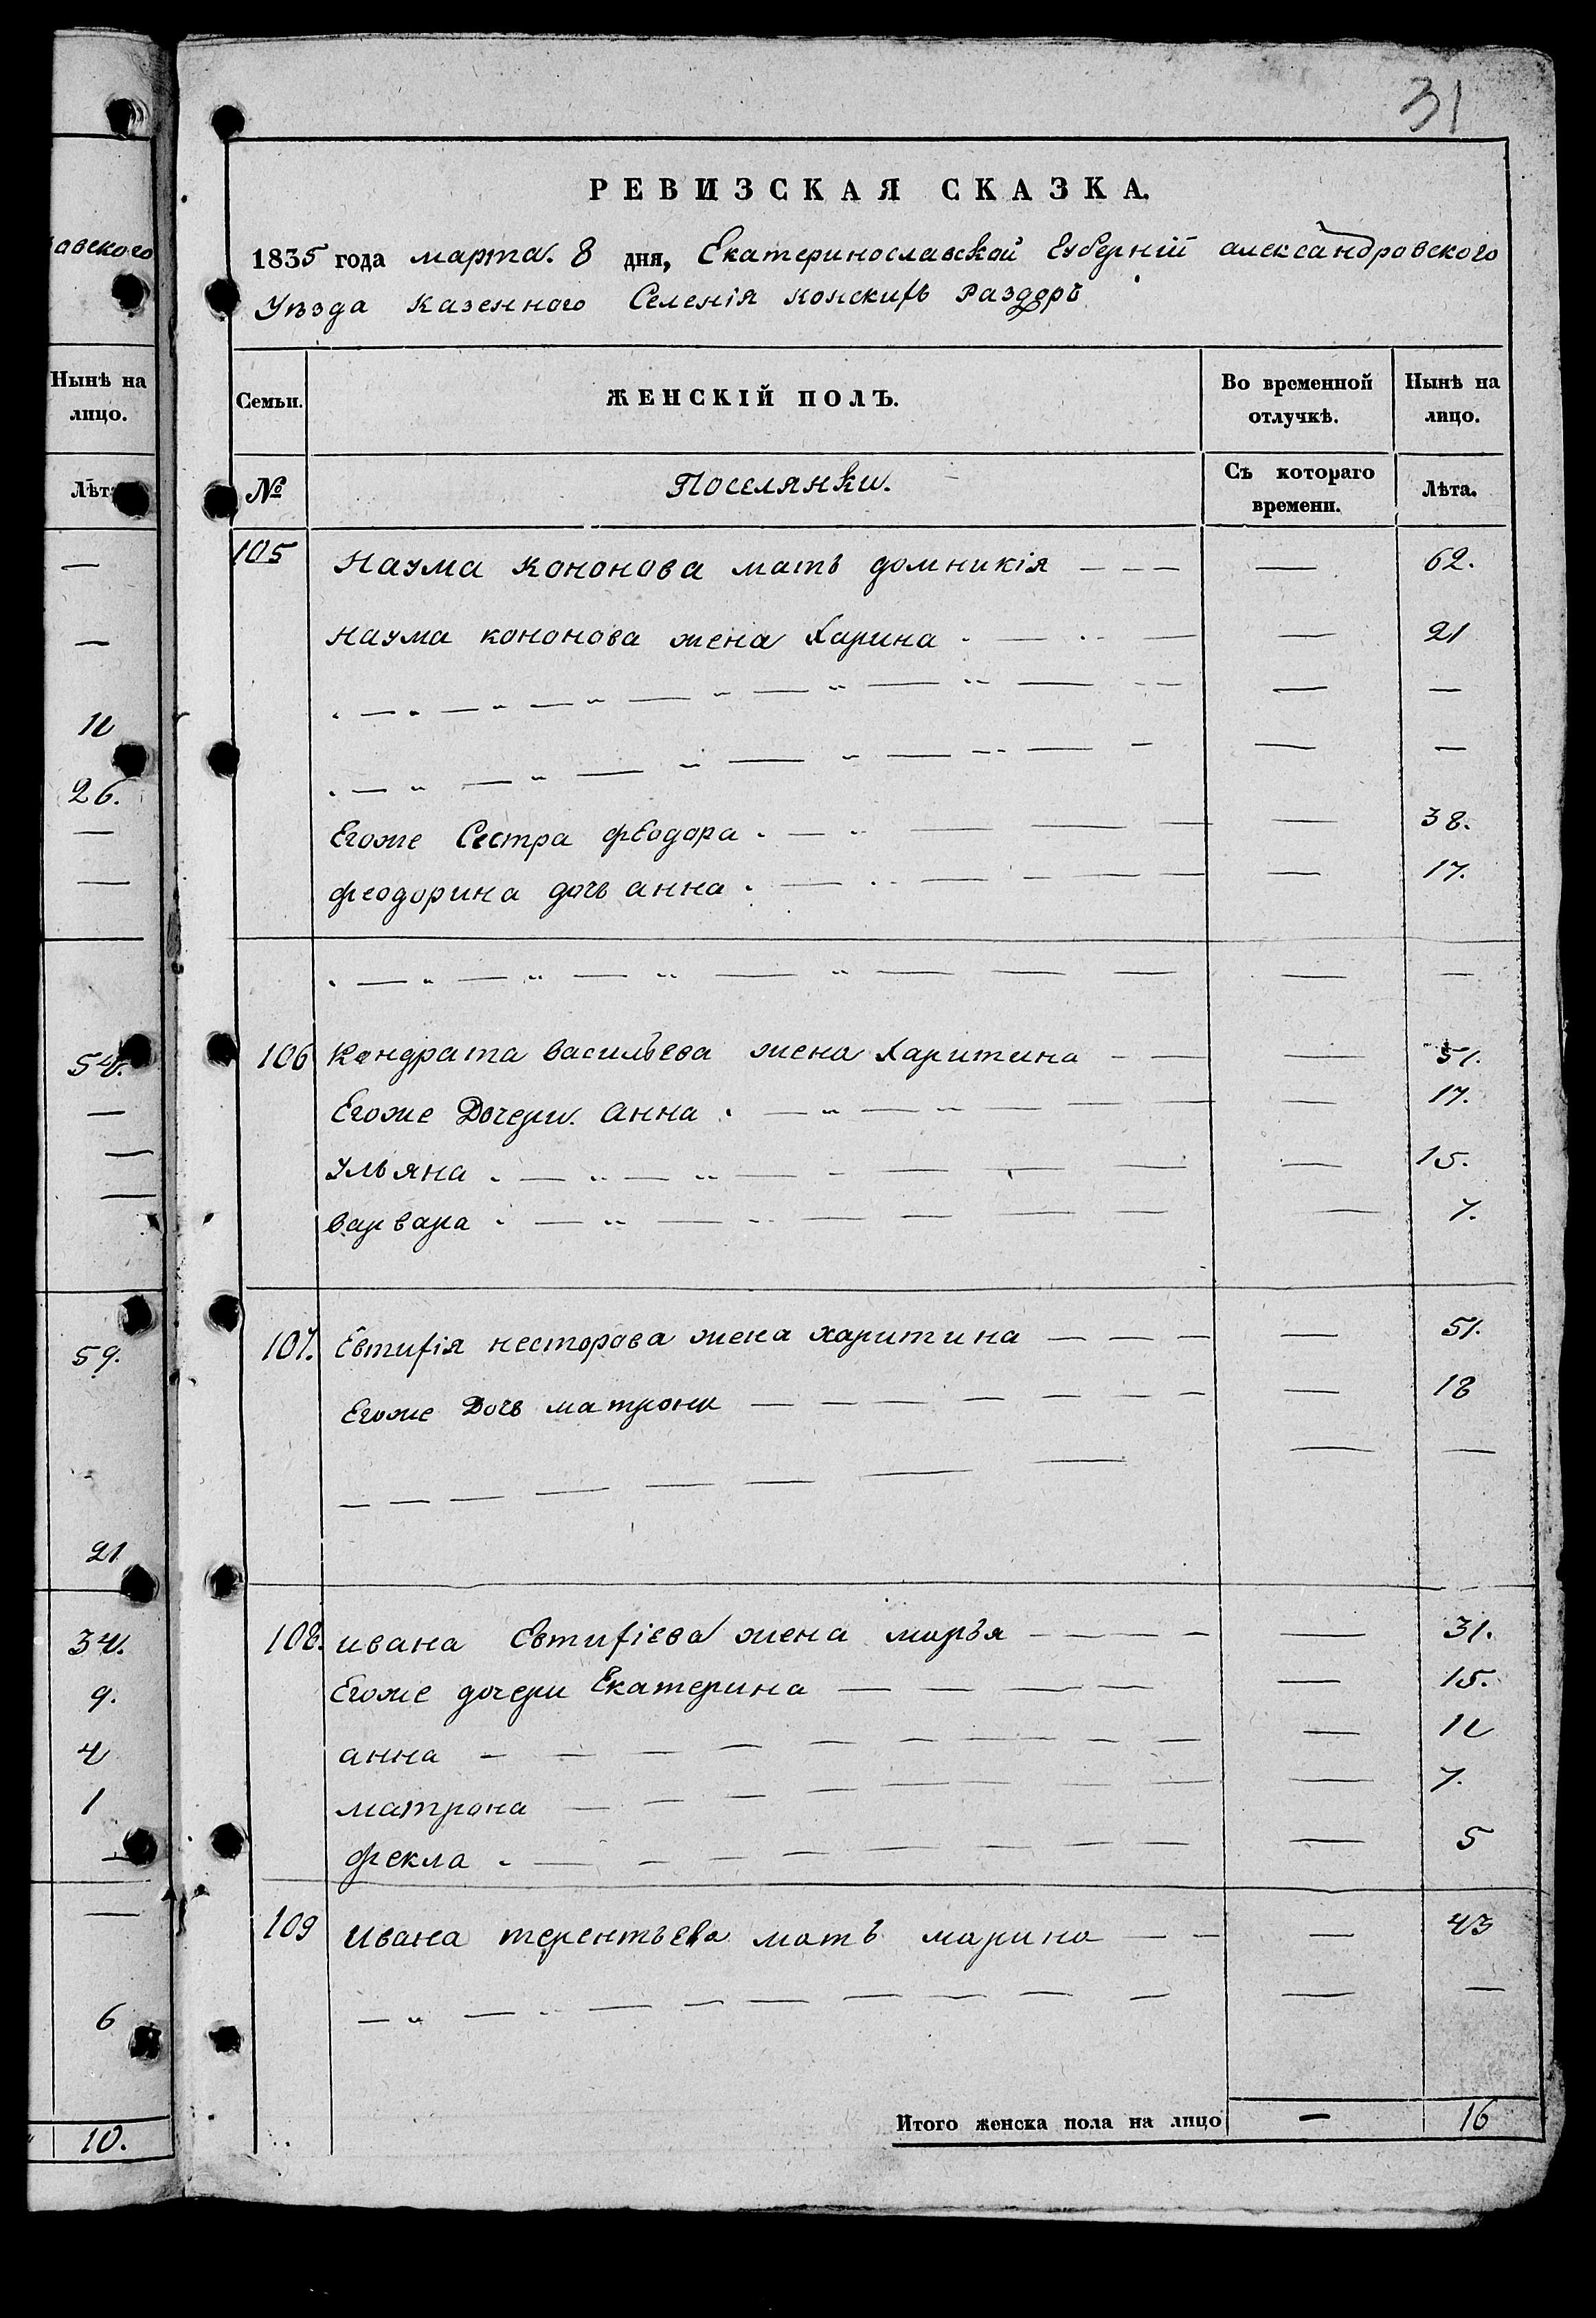 31
РЕВИЗСКАЯ СКАЗКА.
1835 года марта. 8 дня, Екатеринославской Губерній александровского
Уѣзда казенного Селенія конскихъ Раздоръ
Семьи.
ЖЕНСКІЙ ПОЛЪ.
Во временной отлучкѣ.
Нынѣ на лицо.
№
Поселянки.
Съ котораго времени.
Лѣта.
105 Наума Кононова мать домникія — — — — 62.
наума кононова жена Харина — — — 21
— — — — — — — —
— — — — — — — —
Егоже Сестра феодора — — — — — 38.
феодорина дочь анна — — — — — 17.
— — — — — — — —
106 Кондрата васильева жена Харитина — — — 51.
Егоже Дочери. анна — — — — — — 17.
Ульяна — — — — — — 15.
варвара — — — — — — — 7.
107. Евтифія несторова жена харитина — — — — 51.
Егоже Дочь матрона — — — — — — — — 18
— — — — — — — — —
108. ивана Евтифіева жена марья — — — — — 31.
Егоже дочери Екатерина — — — — — 15.
анна — — — — — — — — — — 12
матрона — — — — — — — — — 7.
фекла — — — — — — — — 5
109 ивана терентьева мать марина — — — 43
— — — — — — — — — — —
Итого женска пола на лицо — 16
авского
Нынѣ на
лицо.
Лѣт
—
—
12
26.
—
—
54.
—
—
—
59.
21
34.
9.
4
1
—
—
6
10.